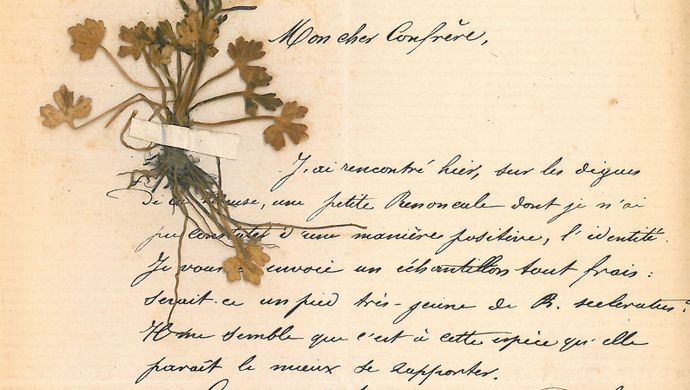 Mon cher Confrère,
J'ai rencontré hier, sur les digues
de la Meuse, une petite Renoncule dont je n'ai
pu constater d'une manière positive, l'identité.
Je vous envoie un échantillon tout frais :
serait-ce un pied très-jeune de R. sceleratus ?
Il me semble que c'est à cette espèce qu'elle
paraît le mieux se rapporter.